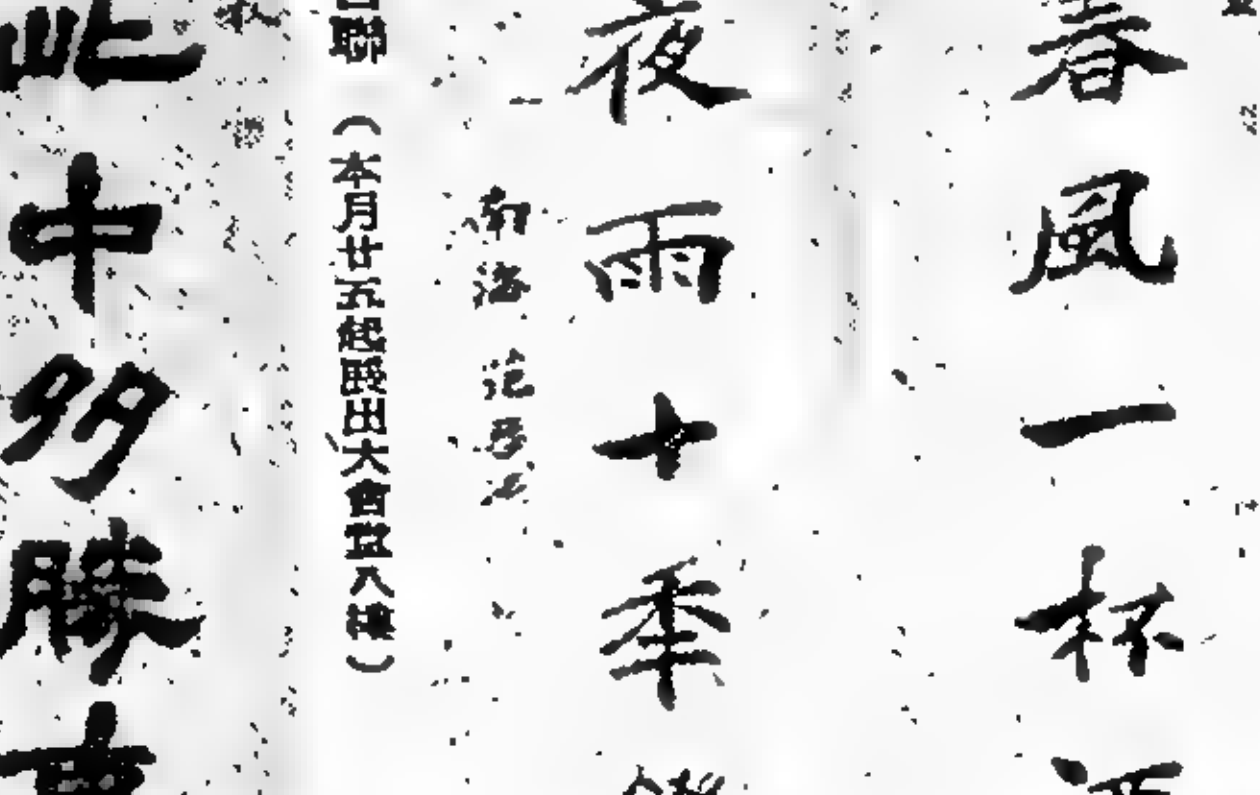 春風一杯
夜雨十秊
南海 范
聯（本月廿五起展出大會堂八樓）
此中多勝